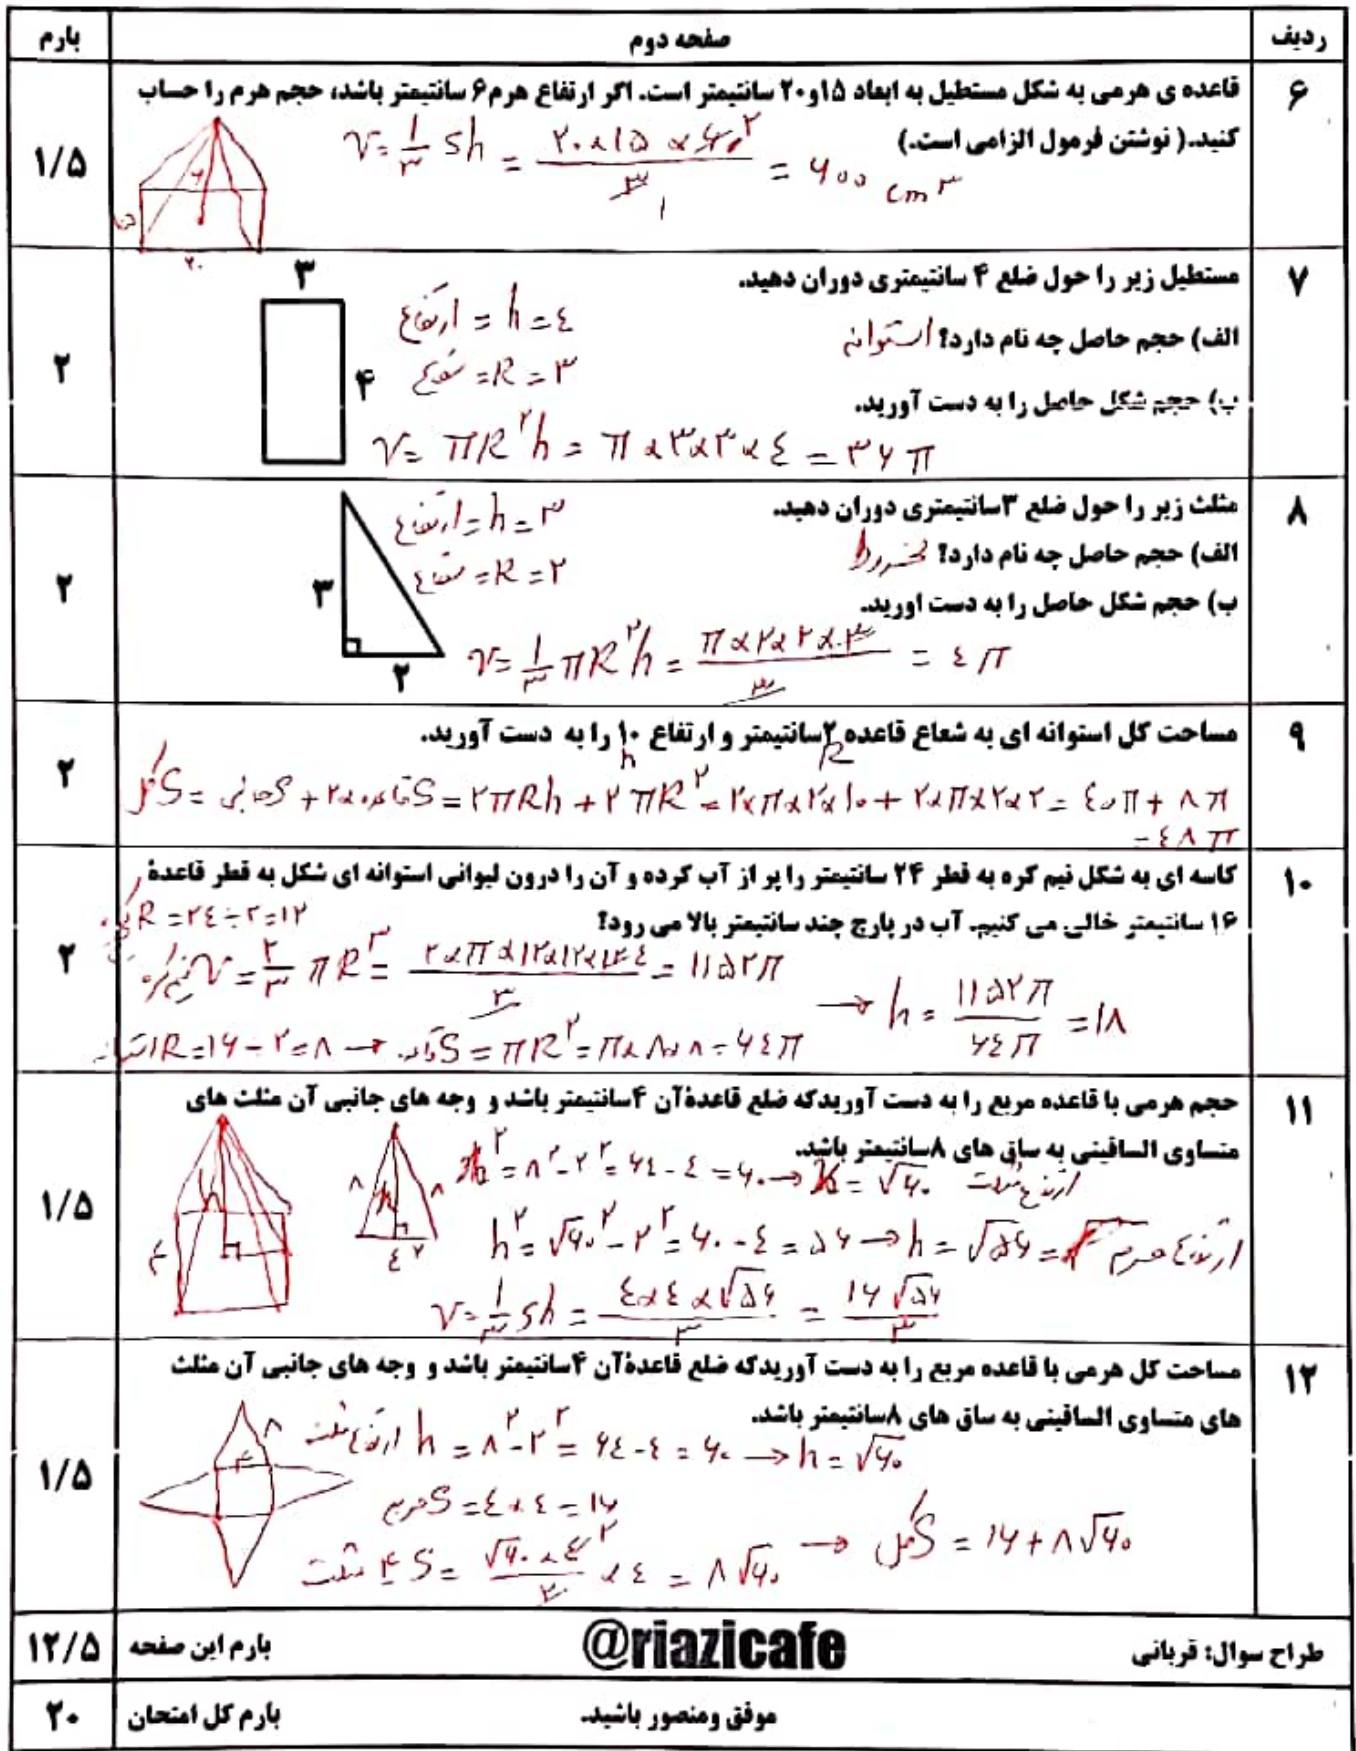 ردیف صفحه دوم بارم
۶ قاعده ی هرمی به شکل مستطیل به ابعاد ۱۵و۲۰ سانتیمتر است. اگر ارتفاع هرم۶ سانتیمتر باشد، حجم هرم را حساب
کنید.( نوشتن فرمول الزامی است.)
۱/۵
V = ۱/۳ Sh = ۲۰×۱۵×۶/۳ = ۶۰۰ cm۳
۶
۲۰
۷ مستطیل زیر را حول ضلع ۴ سانتیمتری دوران دهید.
۳
ارتفاع = h = ٤
الف) حجم حاصل چه نام دارد؟ استوانه
۲
۴
شعاع = R = ۳
ب) حجم شکل حاصل را به دست آورید.
V = πR۲h = π×۳×۳×٤ = ۳۶π
۸ مثلث زیر را حول ضلع ۳سانتیمتری دوران دهید.
ارتفاع = h = ۳
الف) حجم حاصل چه نام دارد؟ مخروط
شعاع = R = ۲
۳
۲
ب) حجم شکل حاصل را به دست اورید.
V = ۱/۳ πR۲h = π×۲×۲×۳/۳ = ٤π
۲
۹ مساحت کل استوانه ای به شعاع قاعده ۲سانتیمتر و ارتفاع ۱۰ را به دست آورید.
R h
۲
S کل = S جانبی + ۲×S قاعده = ۲πRh + ۲πR۲ = ۲×π×۲×۱۰ + ۲×π×۲×۲ = ٤۰π + ۸π
= ٤۸π
۱۰ کاسه ای به شکل نیم کره به قطر ۲۴ سانتیمتر را پر از آب کرده و آن را درون لیوانی استوانه ای شکل به قطر قاعدهٔ
۱۶ سانتیمتر خالی می کنیم. آب در پارچ چند سانتیمتر بالا می رود؟
R = ۲٤÷۲=۱۲
۲
V نیم کره = ۲/۳ πR۳ = ۲×π×۱۲×۱۲×۱۲ ٤/۳ = ۱۱۵۲π
→ h = ۱۱۵۲π/۶٤π = ۱۸
R استوانه = ۱۶÷۲=۸ → S قاعده = πR۲ = π×۸×۸ = ۶٤π
۱۱ حجم هرمی با قاعده مربع را به دست آوریدکه ضلع قاعدهٔآن ۴سانتیمتر باشد و وجه های جانبی آن مثلث های
متساوی الساقینی به ساق های ۸سانتیمتر باشد.
۱/۵
h۲ = ۸۲-۲۲ = ۶٤-٤ = ۶۰ → h = √۶۰ ارتفاع مثلث
۸ ۸
h
٤ ۲
h
٤
h۲ = √۶۰۲-۲۲ = ۶۰-٤ = ۵۶ → h = √۵۶ = ارتفاع هرم
V = ۱/۳ Sh = ٤×٤×√۵۶/۳ = ۱۶√۵۶/۳
۱۲ مساحت کل هرمی با قاعده مربع را به دست آوریدکه ضلع قاعدهٔآن ۴سانتیمتر باشد و وجه های جانبی آن مثلث
های متساوی الساقینی به ساق های ۸سانتیمتر باشد.
۱/۵
۸
۴
ارتفاع مثلث h = ۸۲-۲۲ = ۶٤-٤ = ۶۰ → h = √۶۰
S مربع = ٤×٤ = ۱۶
S ۴ مثلث = √۶۰×٤۲/۲ ×٤ = ۸√۶۰ → S کل = ۱۶+۸√۶۰
طراح سوال: قربانی @riazicafe بارم این صفحه ۱۲/۵
موفق ومنصور باشید. بارم کل امتحان ۲۰